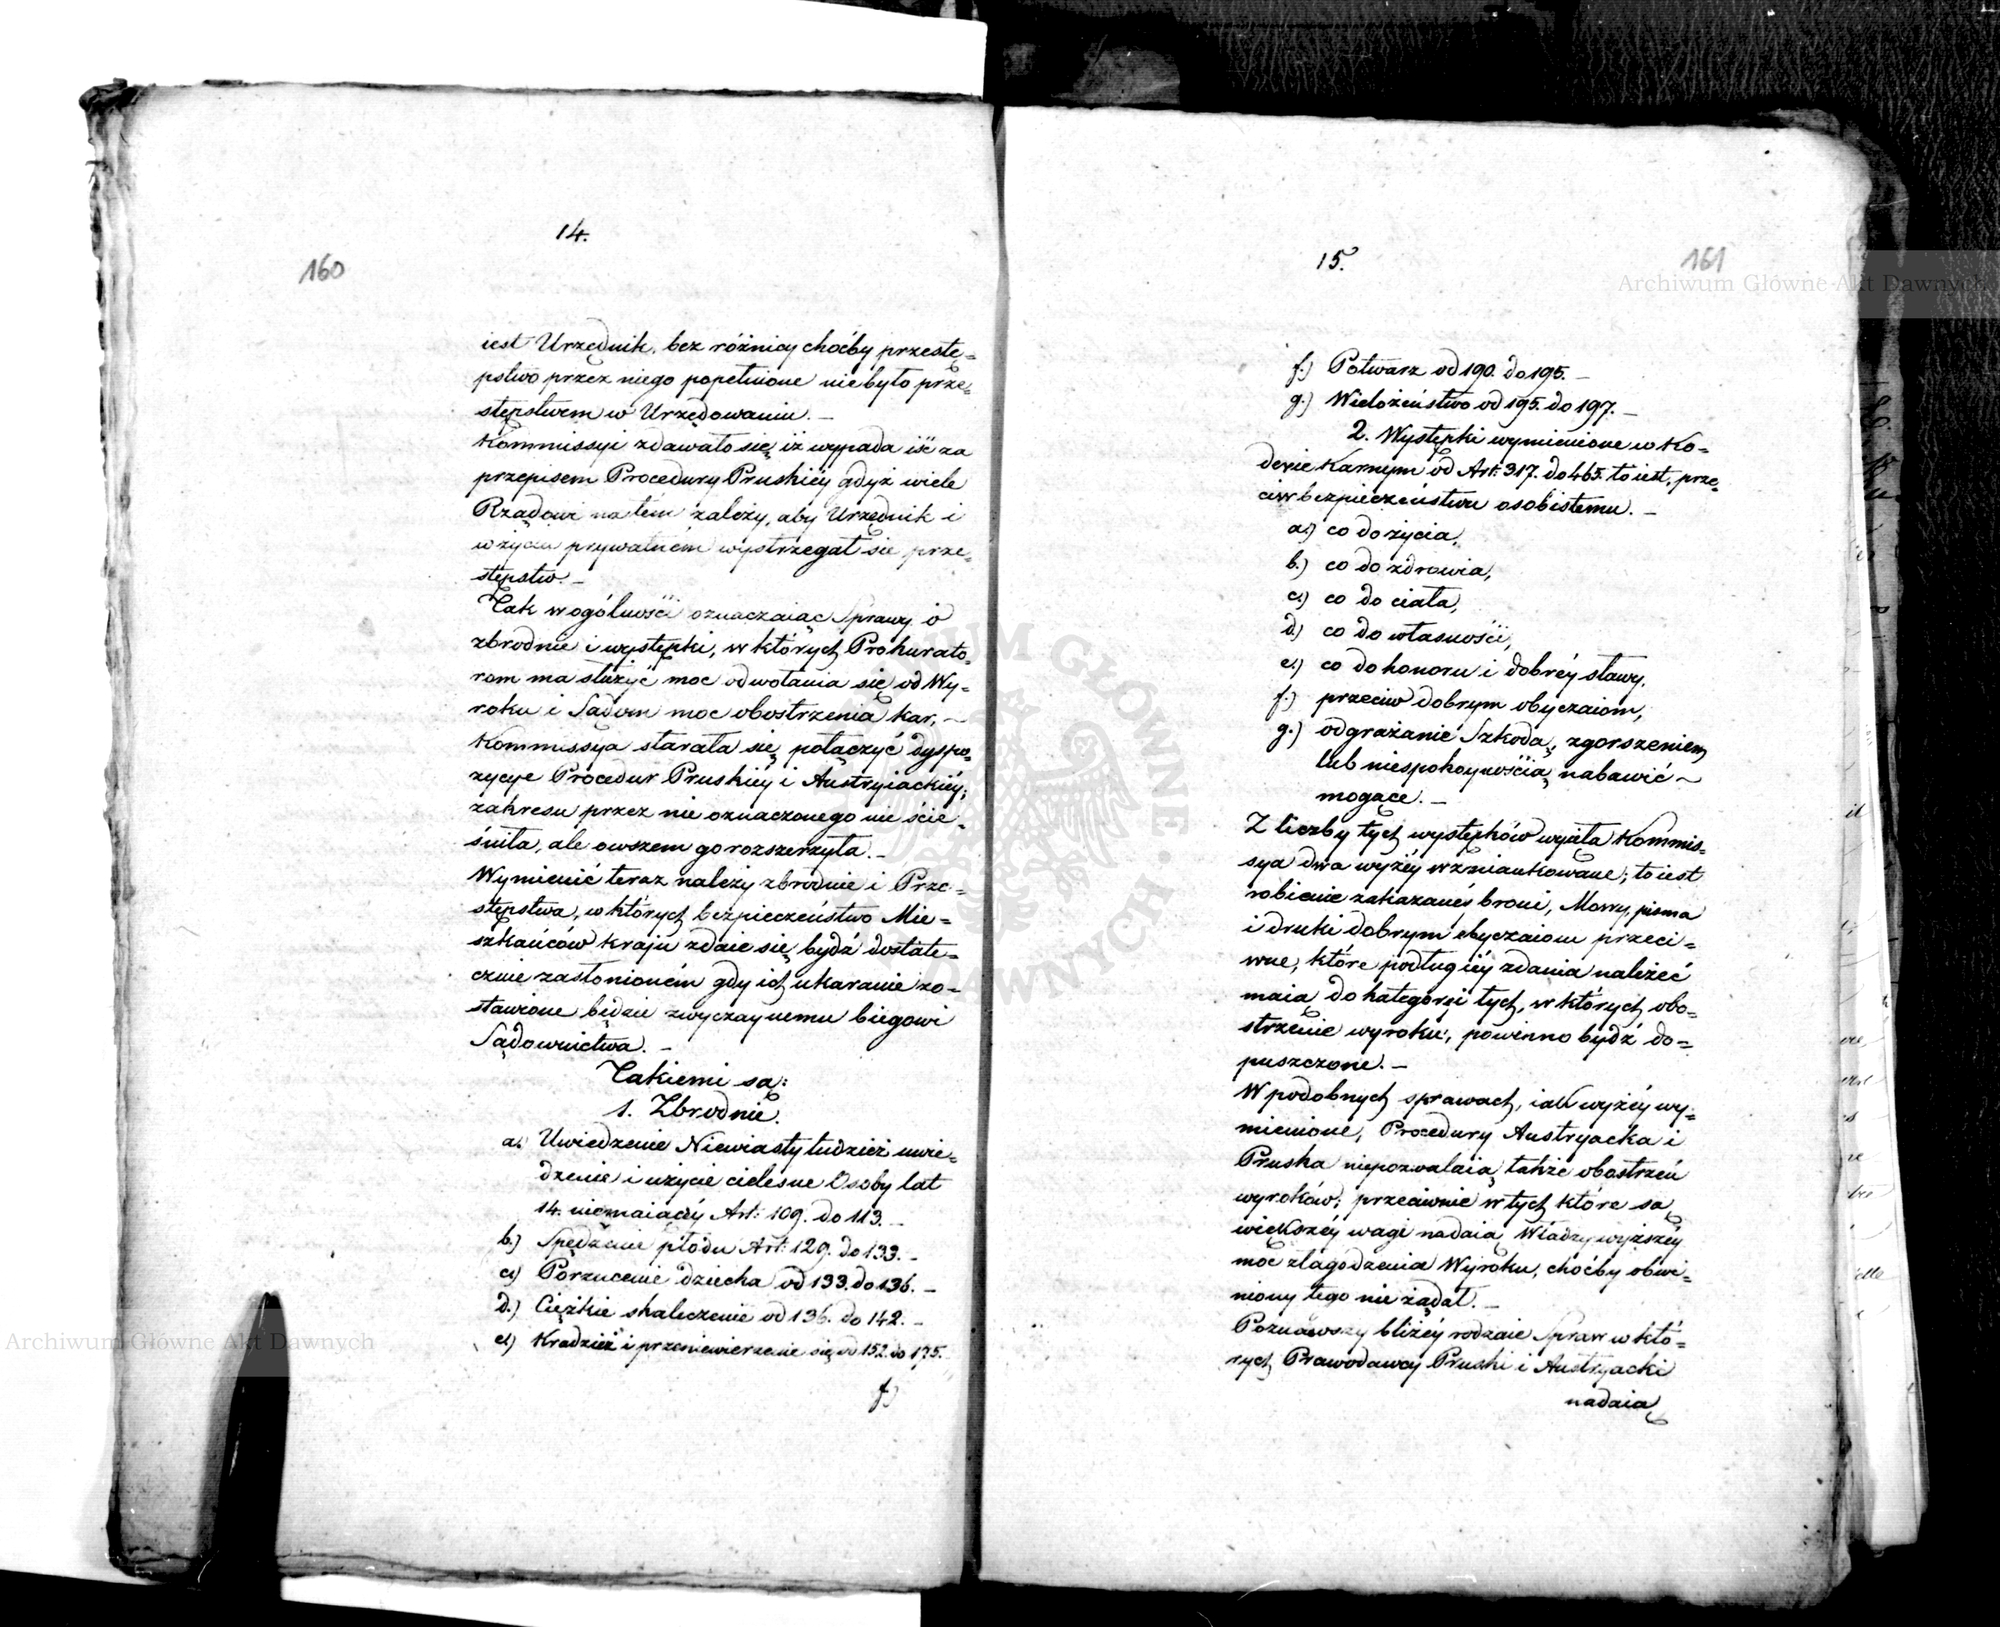 14.
160
iest Urzędnik, bez różnicy choćby przestę=
pstwo przez niego popełnione niebyło prze=
stępstwem w Urzędowaniu. –
Kommissyi zdawało się iż wypada iść za
przepisem Procedury Pruskiéy gdyż wiele
Rządowi na tém zależy, aby Urzędnik i
w życiu prywatném wystrzegał się prze=
stępstw. –
Tak w ogólności oznaczaiąc Sprawy o
zbrodnie i występki, w których Prokurato=
rom ma służyć moc odwołania się od Wy=
roku i Sądom moc obostrzenia kar, –
Kommissya starała się połączyć dyspo=
zycye Procedur Pruskiéy i Austryiackiéy;
zakresu przez nie oznaczonego nie ście=
śniła, ale owszem go rozszerzyła. –
Wymienić teraz należy zbrodnie i Prze=
stępstwa, w których bezpieczeństwo Mie=
szkańców kraju zdaie się bydź dostate=
cznie zasłonioném gdy ich ukaranie zo=
stawione będzie zwyczaynemu biegowi
Sądownictwa. –
Takiemi są:
1. Zbrodnie.
a.) Uwiedzenie Niewiasty tudzież uwie=
dzenie i użycie cielesne Osoby lat
14. niemaiącéy Art: 109. do 113. –
b.) Spędzenie płodu Art: 129. do 133. –
c.) Porzucenie dziecka od 133. do 136. –
d.) Ciężkie skaleczenie od 136. do 142. –
e.) Kradzież i przeniewierzenie się od 152. do 175.
f.)
15.
161
f.) Potwarz od 190. do 195. –
g.) Wielożeństwo od 195. do 197. –
2. Występki wymienione w Ko=
dexie Karnym od Art: 317. do 465. to iest, prze=
ciw bezpieczeństwu osobistemu. –
a.) co do życia,
b.) co do zdrowia,
c.) co do ciała,
d.) co do własności,
e.) co do honoru i dobréy sławy,
f.) przeciw dobrym obyczaiom,
g.) odgrażanie Szkodą, zgorszeniem
lub niespokoynością nabawić ~
mogące. –
Z liczby tych występków wyięła Kommis=
sya dwa wyżéy wzmiankowane; to iest
robienie zakazanéy broni, Mowy, pisma
i druki dobrym obyczaiom przeci=
wne, które podług iéy zdania należeć
maią do kategoryi tych, w których obo=
strzenie wyroku, powinno bydź do=
puszczone. –
W podobnych sprawach, iak wyżéy wy=
mienione, Procedury Austryacka i
Pruska niepozwalaią także obostrzeń
wyroków; przeciwnie w tych które są
większéy wagi nadaią Władzy wyższéy
moc złagodzenia Wyroku, choćby obwi=
niony tego nie żądał. –
Poznawszy bliżéy rodzaie Spraw w któ=
rych Prawodawcy Pruski i Austryacki
nadaią
Archiwum Główne Akt Dawnych
Archiwum Główne Akt Dawnych